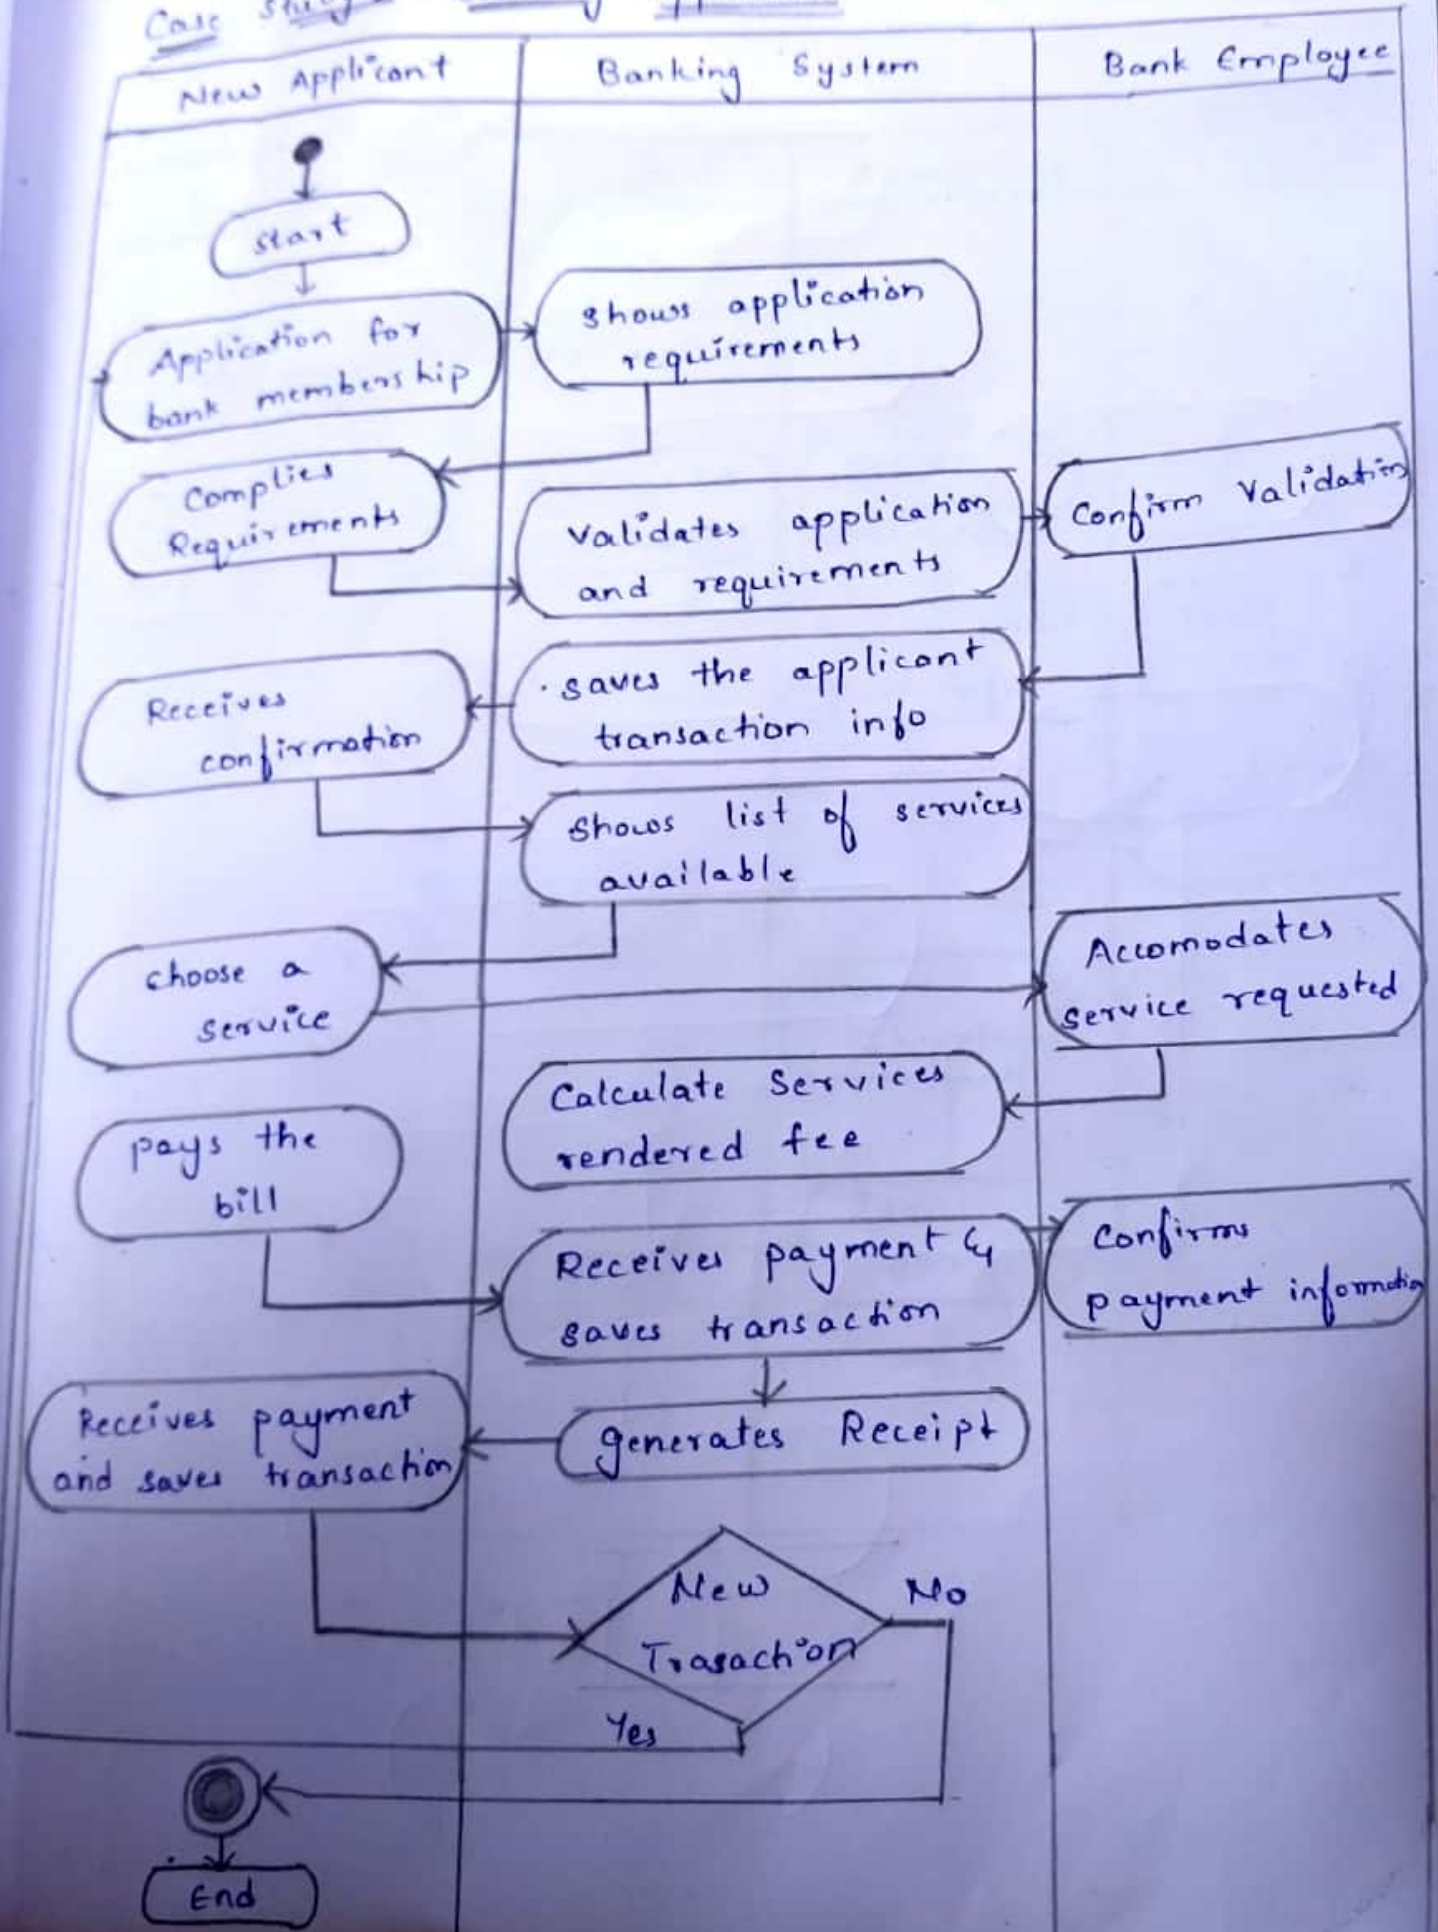 Case
New Applicant
Banking System
Bank Employee
start
Application for
bank membership
Shows application
requirements
Complies
Requirements
Validates application
and requirements
Confirm Validation
Receives
confirmation
saves the applicant
transaction info
Shows list of services
available
choose a
service
Accomodates
service requested
Calculate Services
rendered fee
pays the
bill
Receives payment &
saves transaction
Confirms
payment information
Receives payment
and saves transaction
generates Receipt
New
Trasaction
No
Yes
End